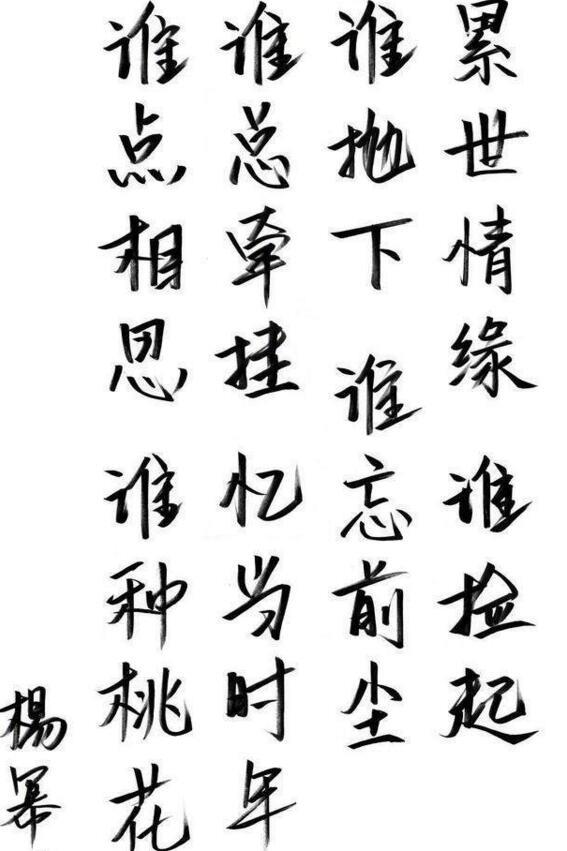 累世情缘 谁捡起
谁抛下 谁忘前尘
谁总牵挂 忆当时年
谁点相思 谁种桃花
楊幂